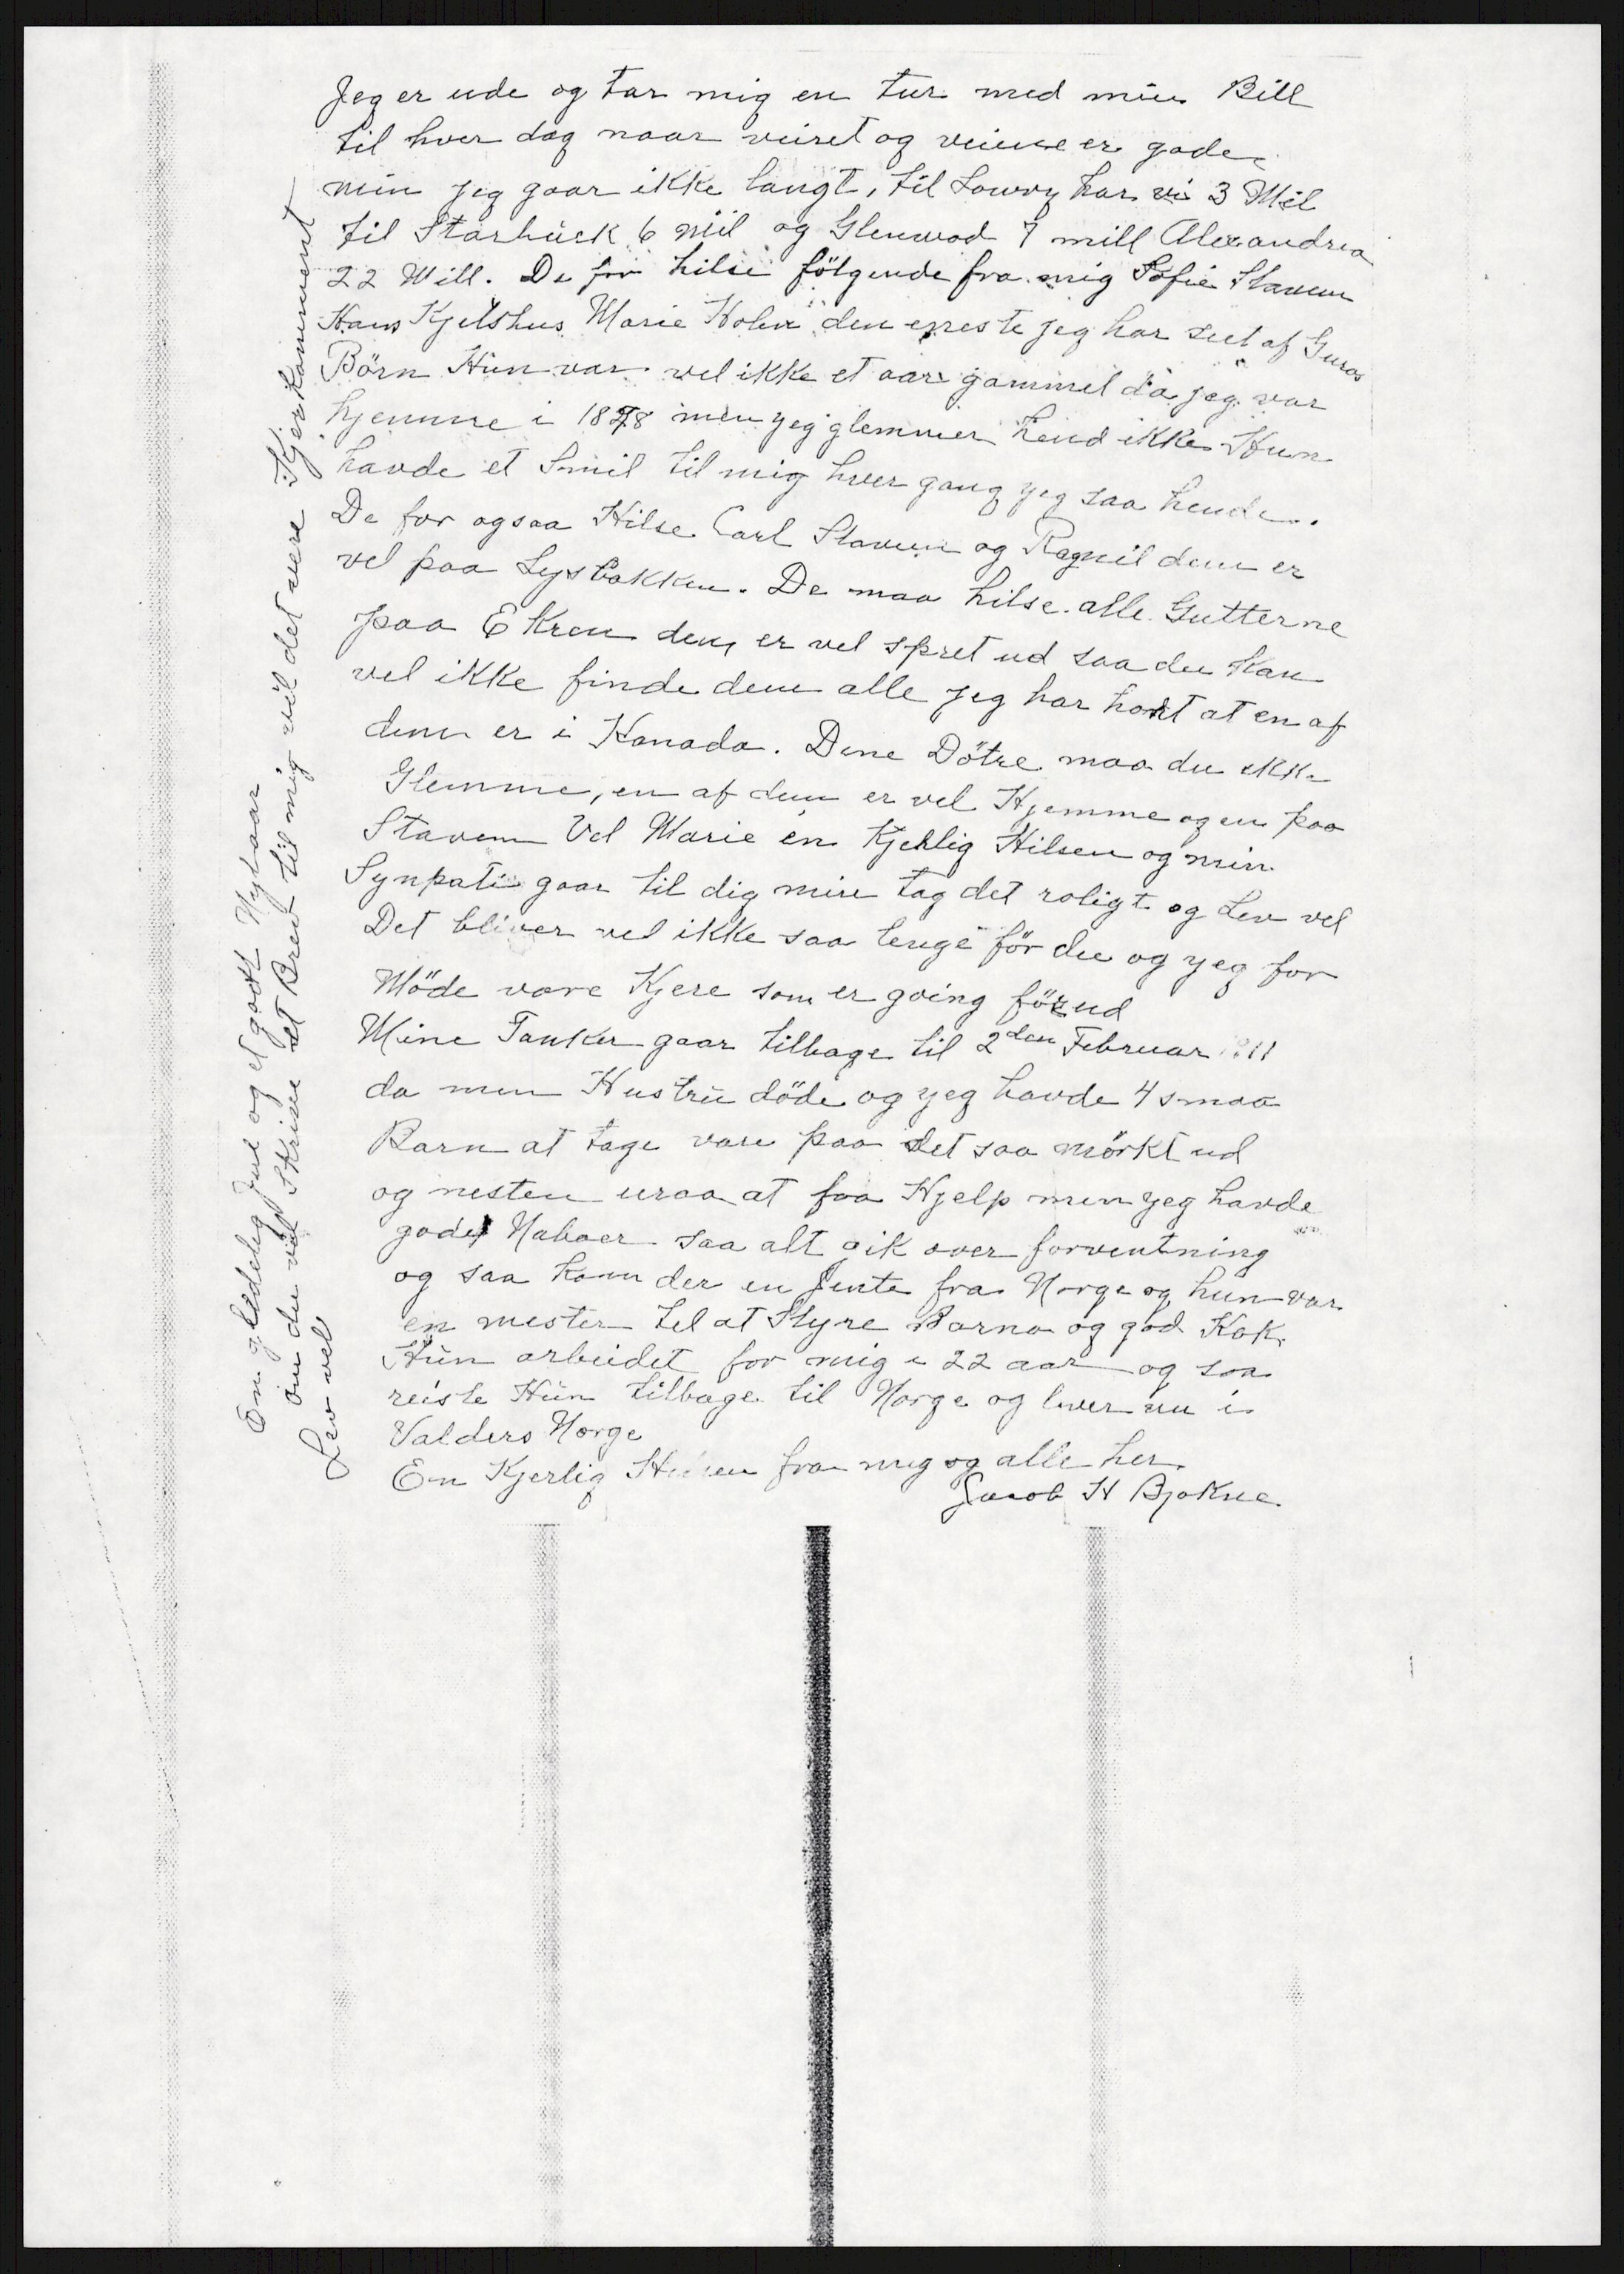 Jeg er ude og tar mig en tur med min Bill
til hver dag naar veiret og veiene er gode
min jeg gaar ikke langt, til Lowry har vi 3 Mil
til Starbuck 6 mil og Glenwod 7 mill Alexandria
22 Mill. De for hilse fölgende fra mig Sofie Staven
Hans Kjelshus Marie Holen den eneste jeg har seet af Guros
Börn Hun var vel ikke et aar gammel da jeg var
hjemme i 1878 men jeg glemmer hend ikke Hun
havde et Smil til mig hver gang jeg saa hende.
De for ogsaa Hilse Carl Staven og Ragnil dem er
vel paa Lysbakken. De maa hilse alle Gutterne
paa Ekren dem er vel spret ud saa du kan
vel ikke finde dem alle jeg har hort at en af
dem er i Kanada. Dine Dötre maa du ikke
Glemme, en af dem er vel Hjemme og en paa
Stavem Vel Marie en Kjerlig Hilsen og min
Synpati gaar til dig min tag det roligt og Lev vel
Det bliver vel ikke saa lenge för du og jeg for
Möde vore Kjere som er going förud
Mine Tanker gaar tilbage til 2den Februar 1911
da min Hustru döde og jeg havde 4 smaa
Barn at tage vare paa det saa mörkt ud
og nesten uraa at faa Hjelp men jeg havde
gode Naboer saa alt gik over forventning
og saa kom der en Jente fra Norge og hun var
en mester til at Styre Barna og god Kok.
Hun arbeidet for mig i 22 aar og saa
reiste Hun tilbage til Norge og lever nu i
Valders Norge
En Kjerlig Hilsen fra mig og alle her
Jacob H Bjokne
En gledelig Jul og et godt Nytaar
om du vil Skrive et Brev til mig vil det vere Kjerkomment
Lev vel